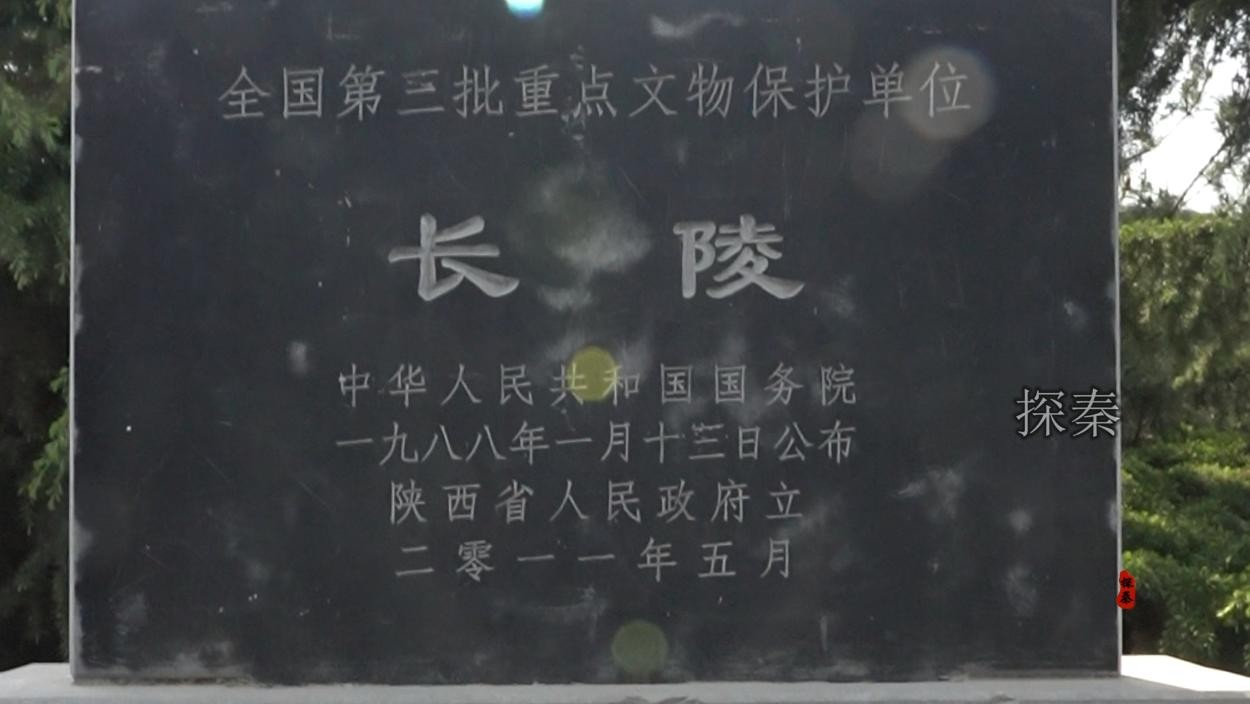 全国第三批重点文物保护单位
长陵
中华人民共和国国务院
一九八八年一月十三日公布
陕西省人民政府立
二零一一年五月
探秦
探秦